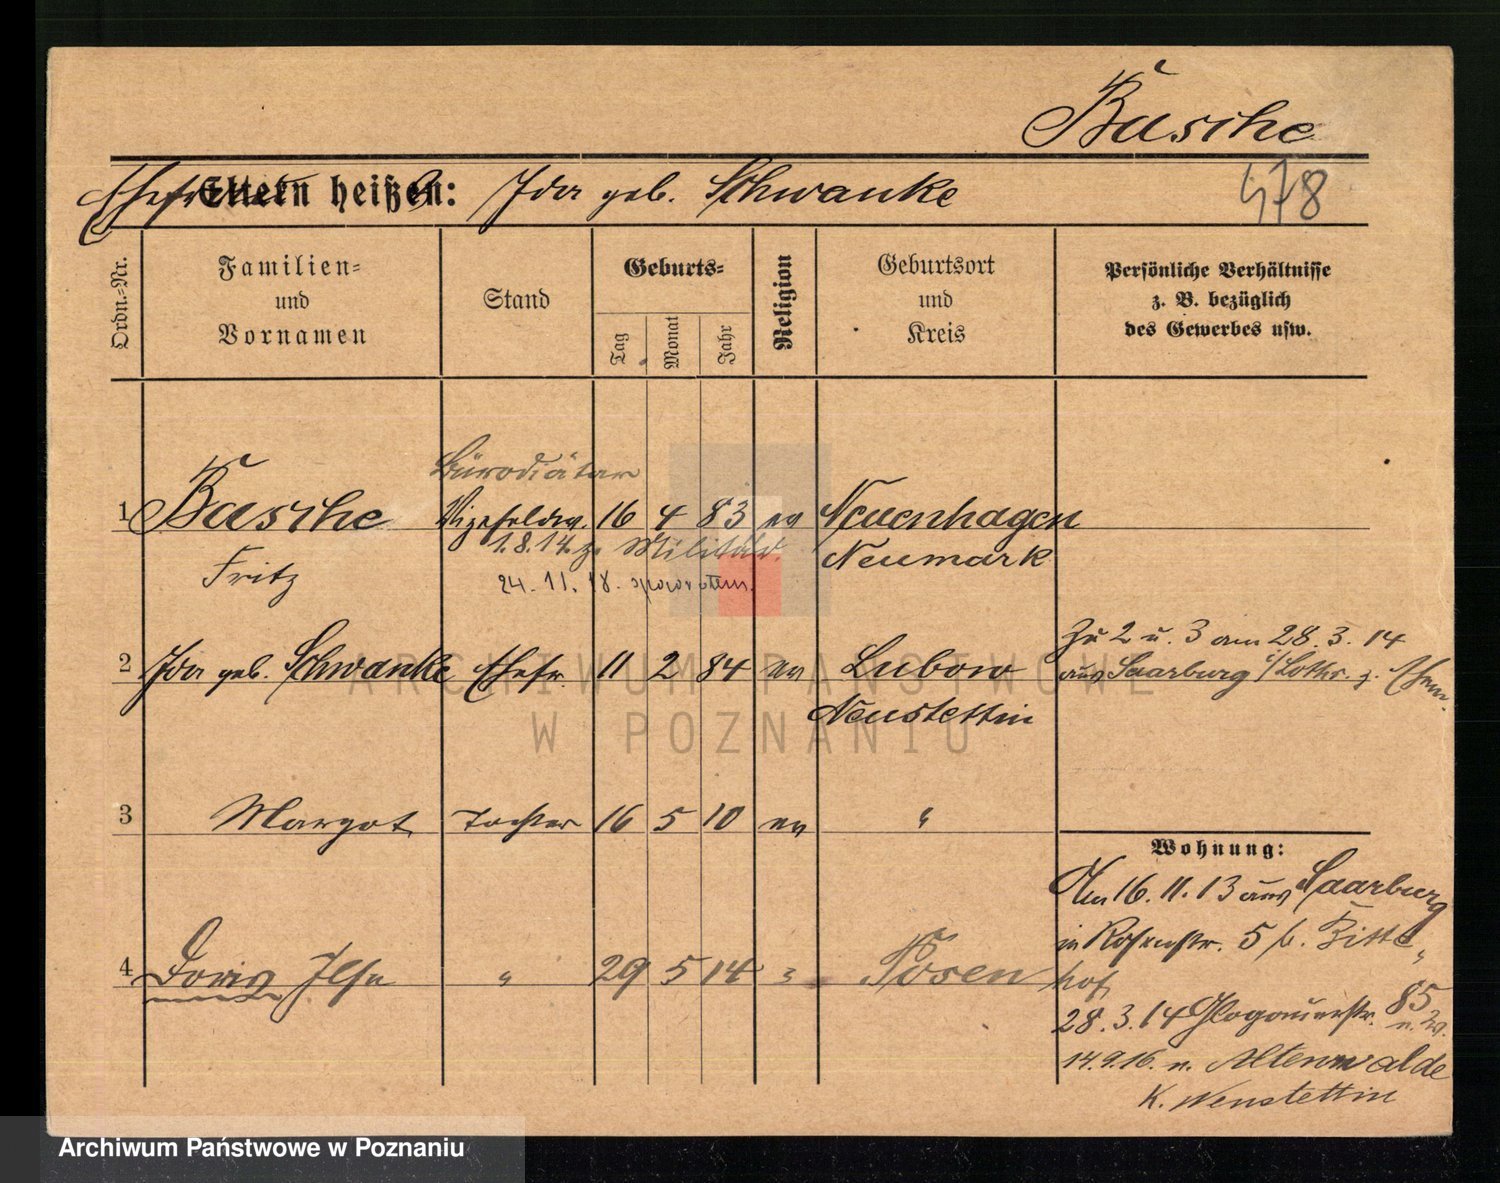 Basche
Eltern heißen: Ida geb. Schwanke
478
Ordn.-Nr.
Familien- und Vornamen
Stand
Geburts-
Tag
Monat
Jahr
Religion
Geburtsort und Kreis
Persönliche Verhältnisse z. B. bezüglich des Gewerbes usw.
Bürodiätar
1 Basche Vizefeldw. 16 4 83 ev Neuenhagen
1.8.14 z. Militär
Fritz Neumark
24.11.18.
Zu 2 u. 3 am 28.3.14
2 Ida geb. Schwanke Ehefr. 11 2 84 ev Lubow
aus Saarburg i/Lothr. z. Ehem.
Neustettin
3 Margot Tochter 16 5 10 ev "
Wohnung:
Am 16.11.13 aus Saarburg
in 5 b.
4 Doris Ilse " 29 5 14 " Posen
28.3.14 Glogauerstr. 85
14.9.16 n. Altenwalde
K. Neustettin
ARCHIWUM PAŃSTWOWE
W POZNANIU
Archiwum Państwowe w Poznaniu